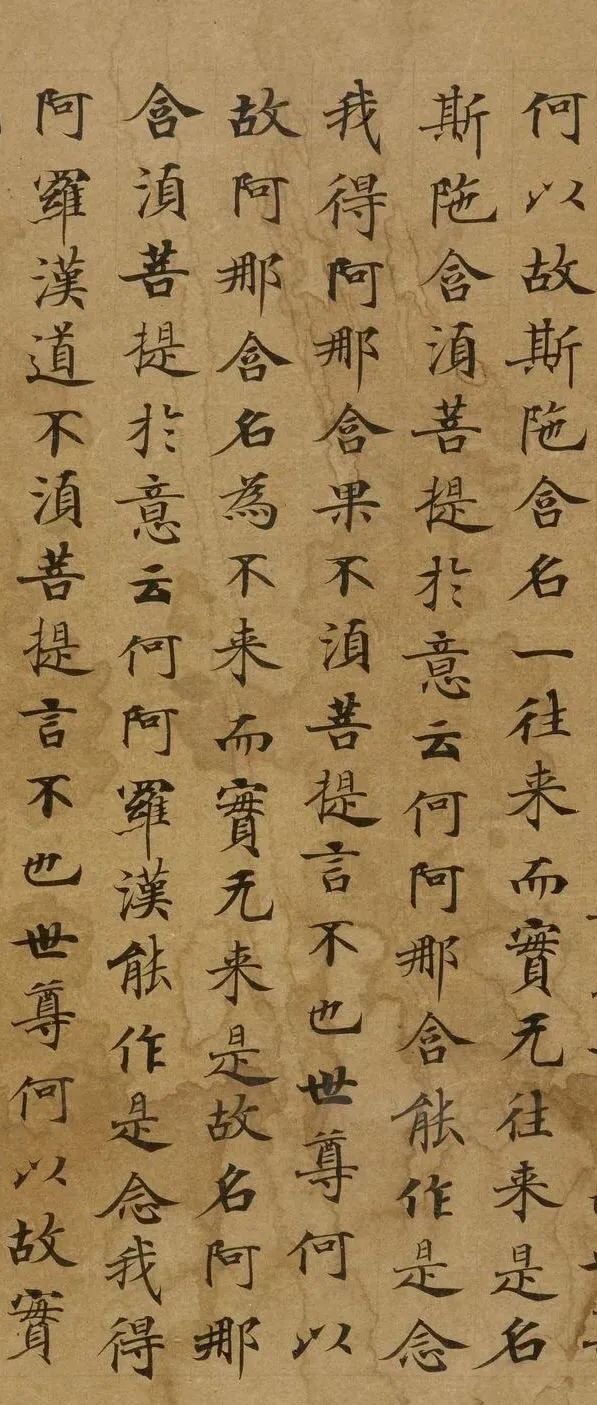 何以故斯陁含名一往来而實无往来是名
斯陁含湏菩提於意云何阿那含能作是念
我得阿那含果不湏菩提言不也世尊何以
故阿那含名為不来而實无来是故名阿那
含湏菩提於意云何阿羅漢能作是念我得
阿羅漢道不湏菩提言不也世尊何以故實